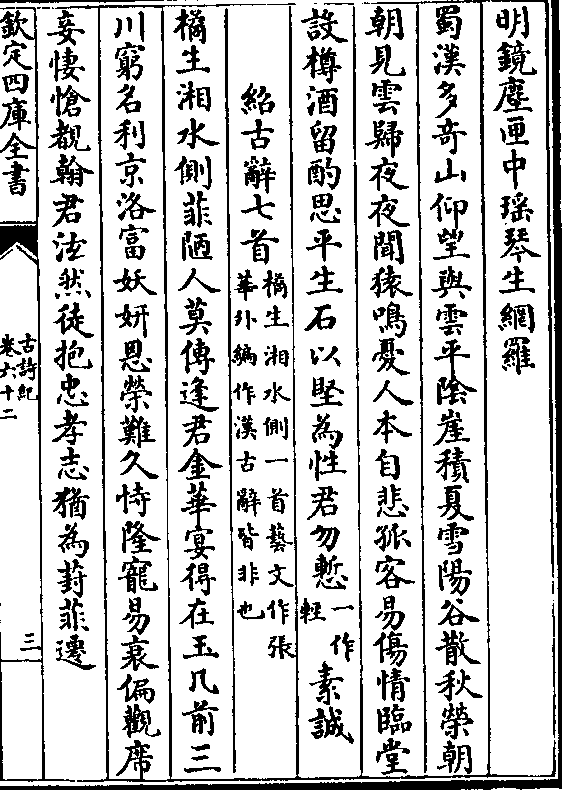 明鏡塵匣中瑶琴生網羅
蜀漢多奇山仰望與雲平陰崖積夏雪陽谷散秋榮朝
朝見雲歸夜夜聞猿鳴憂人本自悲孤客易傷情臨堂
設樽酒留酌思平生石以堅為性君勿慙一作輕素誠
紹古辭七首橘生湘水側一首藝文作張華外編作漢古辭皆非也
橘生湘水側菲陋人莫傳逢君金華宴得在玉几前三
川窮名利京洛富妖妍恩榮難久恃隆寵易衰偏觀席
妾悽愴覩翰君泫然徒抱忠孝志猶為葑菲遷
欽定四庫全書
古詩紀
卷六十二
三